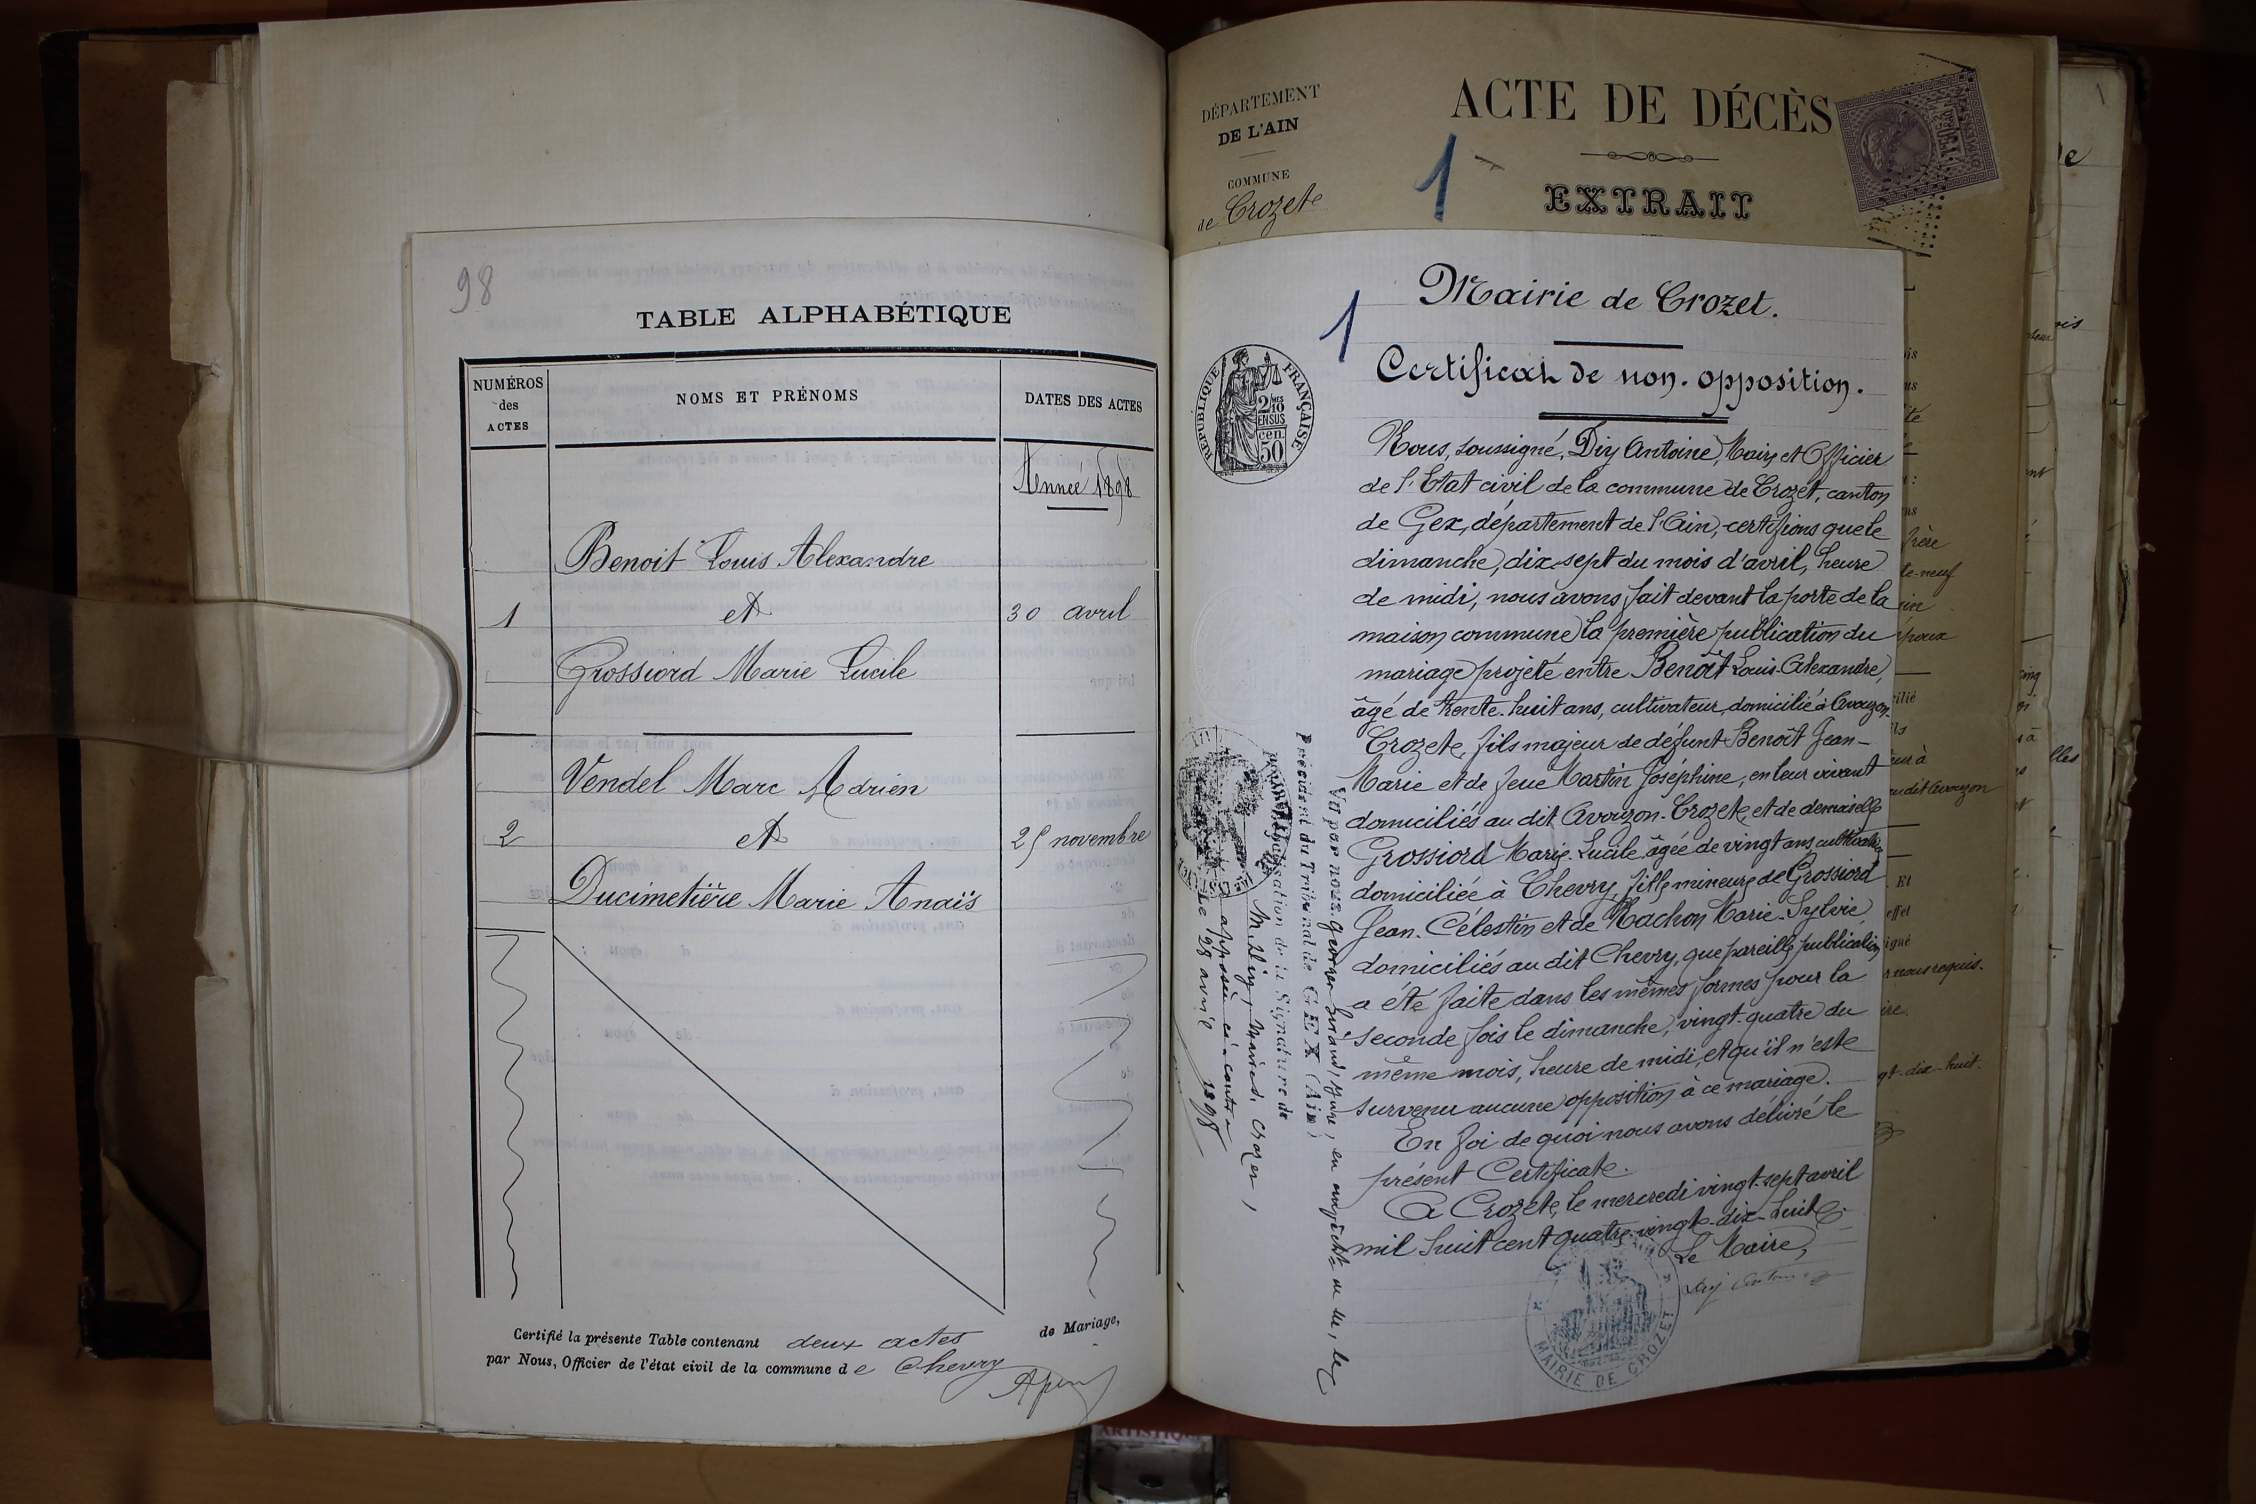 98
TABLE ALPHABÉTIQUE
NUMÉROS
des
ACTES
NOMS ET PRÉNOMS
DATES DES ACTES
Année 1898
Benoit Louis Alexandre
1 et 30 avril
Grossiord Marie Lucile
Vendel Marc Adrien
2 et 25 novembre
Ducimetière Marie Anaïs
Certifié la présente Table contenant deux actes de Mariage,
par Nous, Officier de l'état civil de la commune de Chevry
DÉPARTEMENT
DE L'AIN
COMMUNE
de Crozet
ACTE DE DÉCÈS
1
EXTRAIT
1
Mairie de Crozet.
Certificat de non-opposition.
RÉPUBLIQUE FRANÇAISE
2/10
EN SUS
50
cen.
Nous, soussigné, Diy Antoine, Maire et Officier
de l'Etat civil de la commune de Crozet, canton
de Gex, département de l'Ain, certifions que le
dimanche, dix-sept du mois d'avril, heure
de midi, nous avons fait devant la porte de la
maison commune la première publication du
mariage projeté entre Benoît Louis-Alexandre,
âgé de trente-huit ans, cultivateur, domicilié à Avouzon-
Crozet, fils majeur de défunt Benoît Jean-
Marie et de feue Martin Joséphine, en leur vivant
domiciliés au dit Avouzon-Crozet, et de demoiselle
Grossiord Marie-Lucile, âgée de vingt ans, cultivatrice
domiciliée à Chevry, fille mineure de Grossiord
Jean-Célestin et de Machon Marie-Sylvie
domiciliés au dit Chevry, que pareille publication
a été faite dans les mêmes formes pour la
seconde fois le dimanche, vingt-quatre du
même mois, heure de midi, et qu'il n'est
survenu aucune opposition à ce mariage.
En foi de quoi nous avons délivré le
présent Certificat.
A Crozet, le mercredi vingt-sept avril
mil huit cent quatre-vingt-dix-huit.
Le Maire,
Diy Antoine
MAIRIE DE CROZET
Vu par nous
Président du Tribunal de GEX (Ain)
légalisation de la signature de
M. Diy, Maire d. Crozet,
apposée ci-contre
le 28 avril 1898